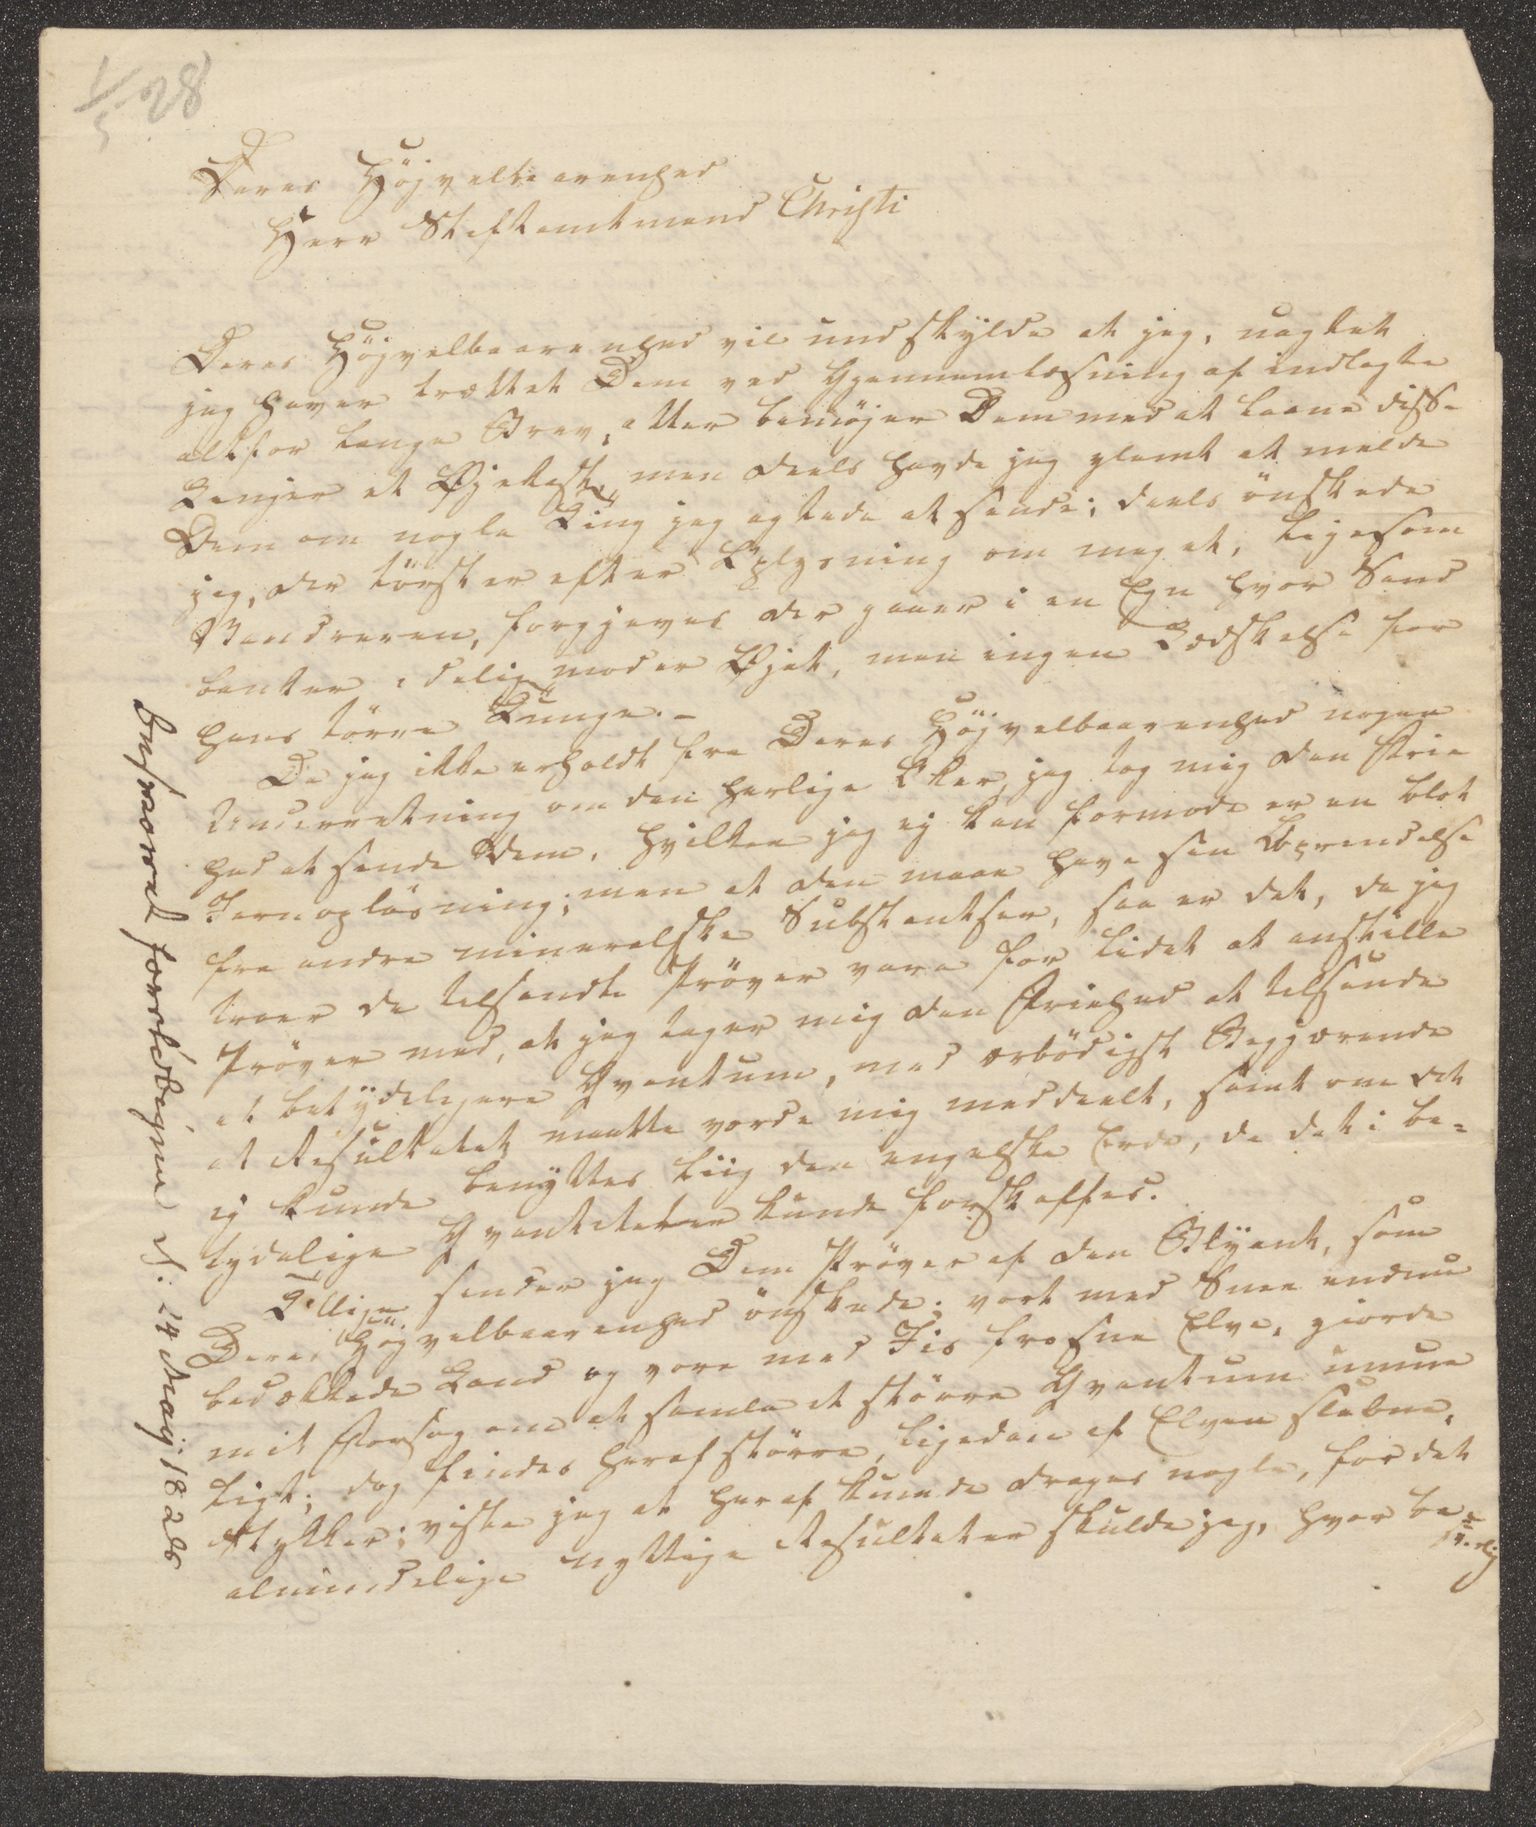 1/5 28
Deres Højvelbaarenhed
Herr Stiftamtmand Christi
Deres Højvelbaarenhed vil undskylde at jeg, uagtet
jeg haver trættet Dem ved Gjennemlæsning af indlagte
altfor lange Brev, atter bemøjer Dem med at laane disse
Linjer et Øjekast, men deels havde jeg glemt at melde
Dem om nogle Ting jeg agtede at sende; deels önskede
jeg, der törster efter Oplysning om meget, ligesom
Vandreren, forgjeves der gaaer i en Egn hvor Sand
banker idelig møder Øjet, men ingen Ledskelse for
hans törre Tunge. –
Da jeg ikke erholdt fra Deres Højvelbaarenhed nogen
Underretning om den herlige Oker, jeg tog mig den Frie
hed at sende Dem, hvilken jeg ej kan formode er en blot
Jernoplösning; men at den maae have sin Oprindelse
fra andre mineralske Substantser, saa er det, da jeg
troer de tilsendte Pröver vare for lidet at anstille
Pröver med, at jeg tager mig den Friehed at tilsende
et betydeligere Qvantum, med ærbödigst Begjærende
at Resultatet maatte vorde mig meddeelt, samt om det
ej kunde benyttes liig den engelske Erde, da det i be-
tydelige Qvantiteter kunde forskaffes.
Tillige sender jeg Dem Pröver af den Blyant, som
Deres Højvelbaarenhed önskede; vort med Snee endnu
bedækkede Land og vore med Iis frosne Elve, giorde
mit Forsög om at samle et större Qvantum umue
ligt; dog findes heraf större, ligedan af Elven slebne,
Stykker; viste jeg at heraf kunde drages nogle, for det
almindelige nyttige Resultater skulde jeg, hvor be-
Besvaret foreløbigen d: 14 Maij 1828